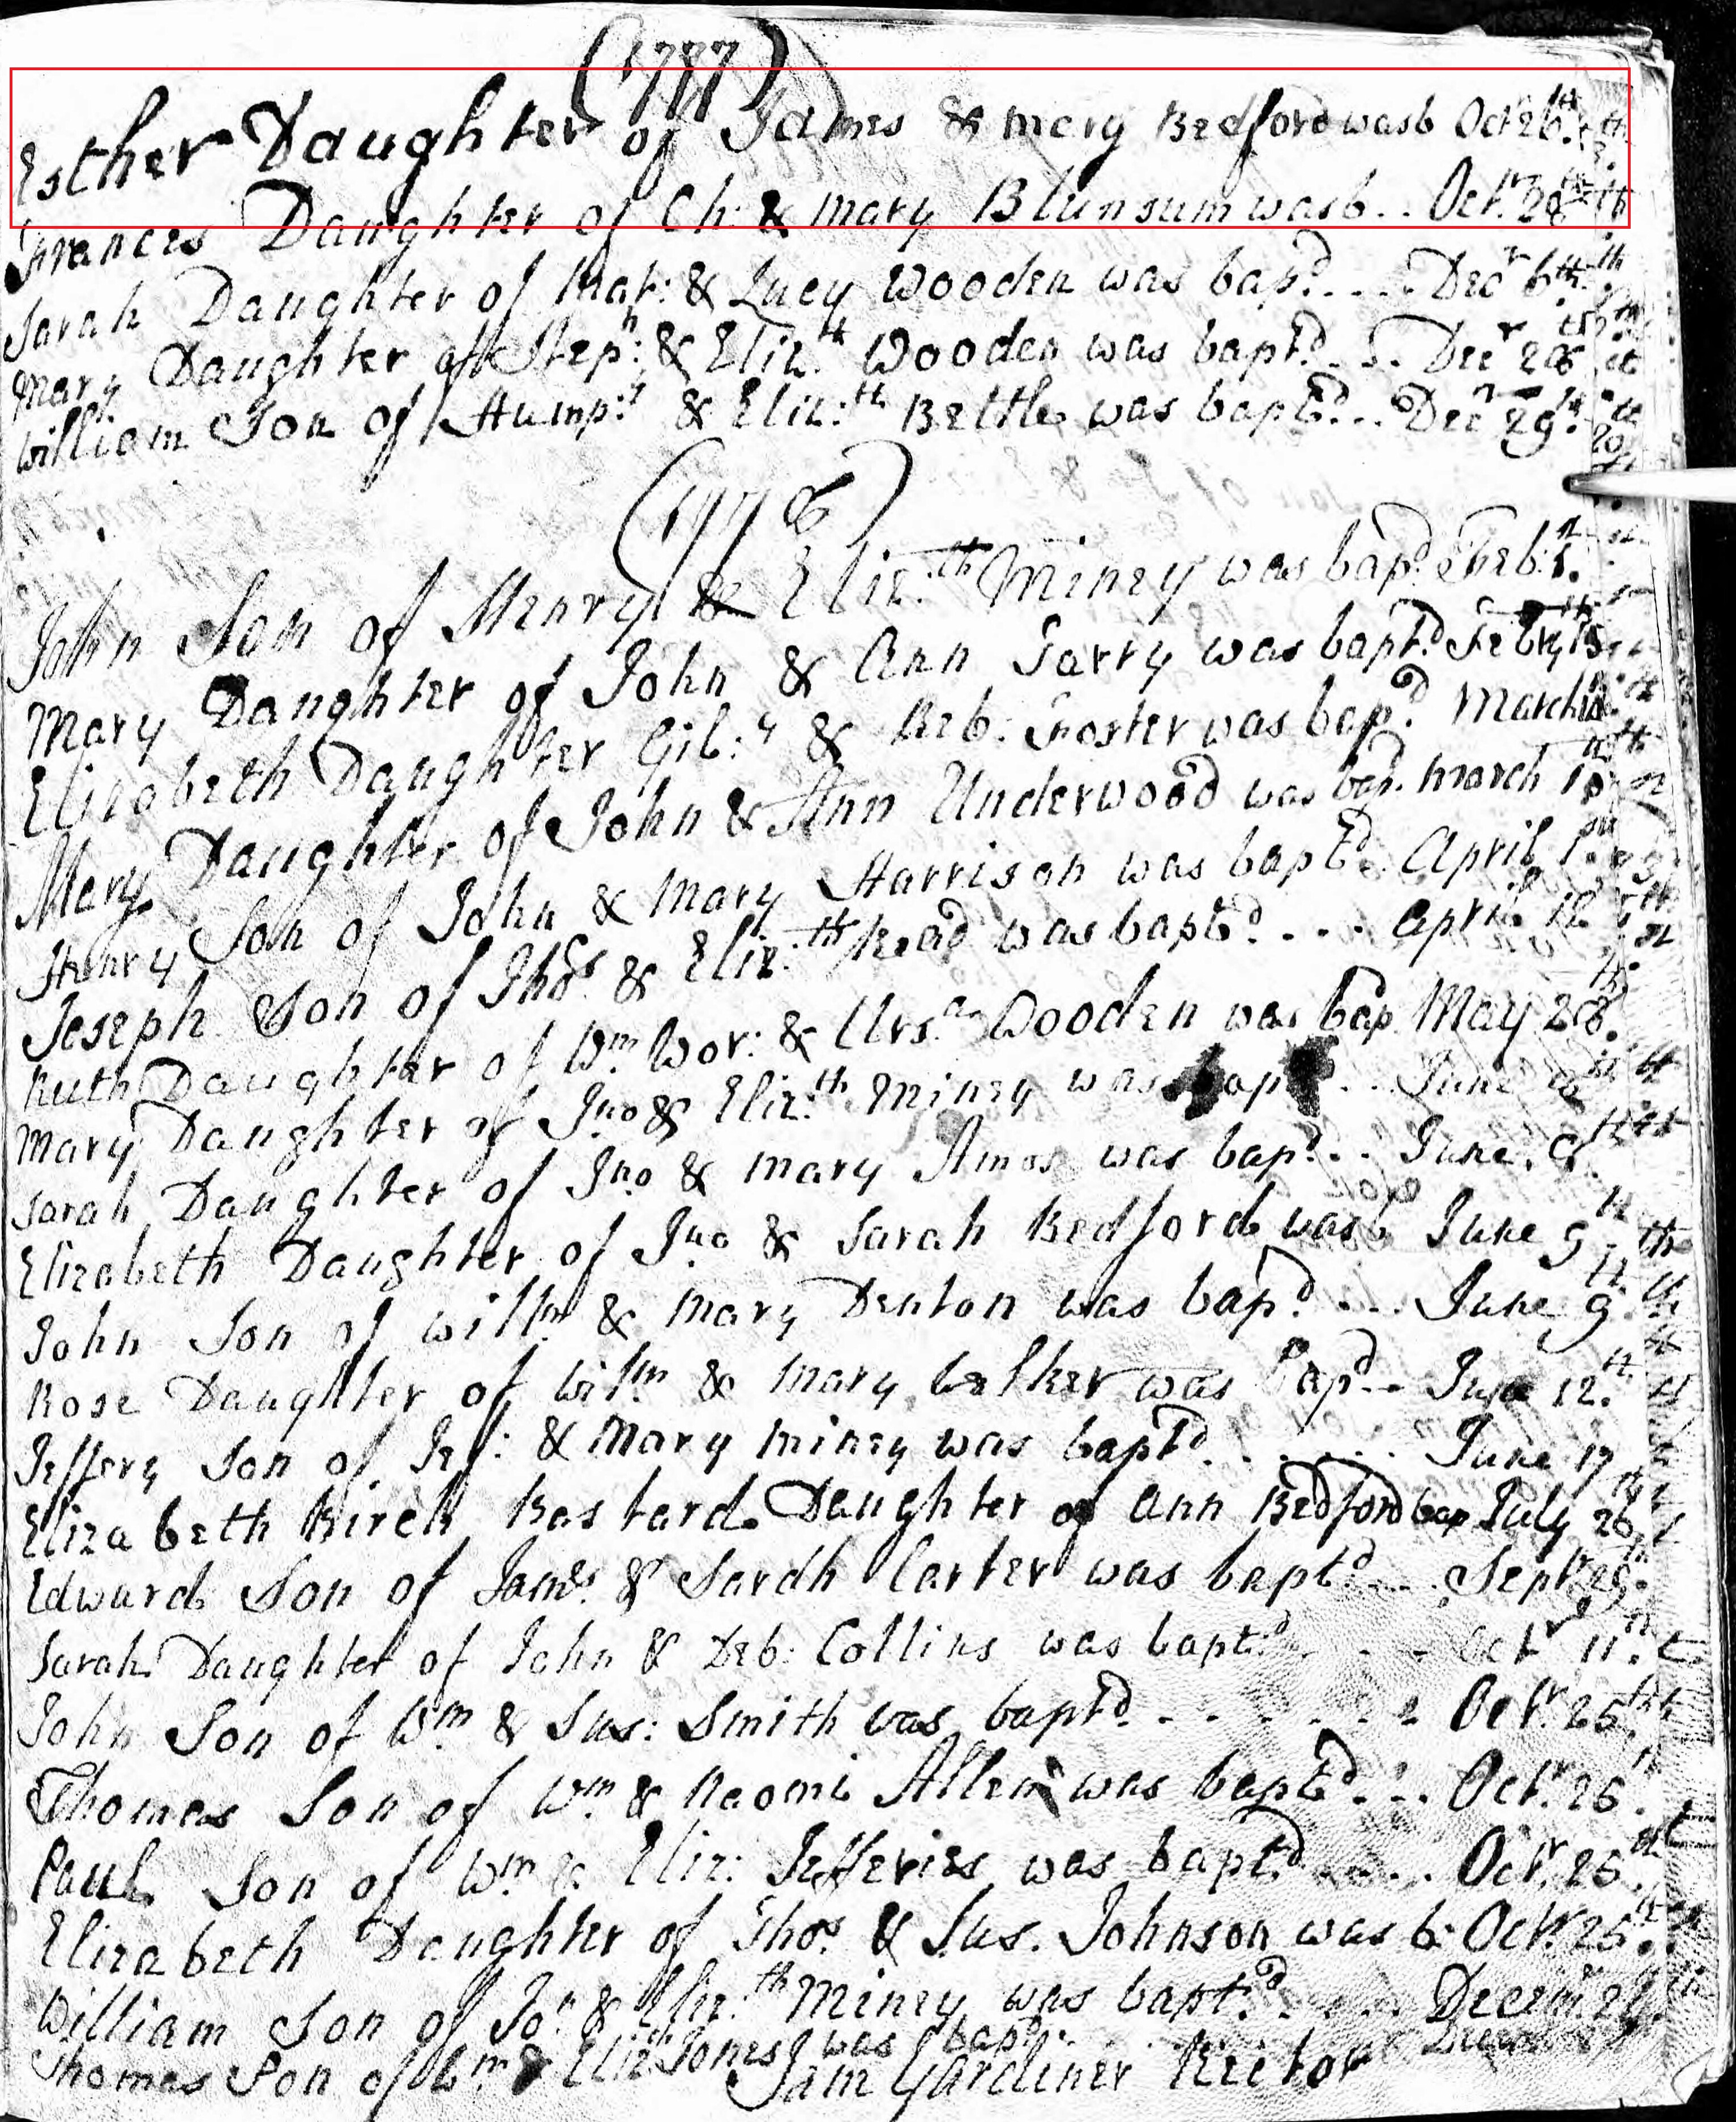 (1777)
Esther Daughter of James & mary Bedford was b Octr 26.th
Frances Daughter of Ch: & Mary Blunsum was b.. Octr. 28th
Sarah Daughter of Nat: & Lucy Wooden was bap.d .... Decr 6th
Mary Daughter of Step:n & Eliz:th Wooden was bapt.d ... Decr 28
William Son of Hump:y & Eliz:th Bettle was bapt.d... Decr 29th
(1778)
John Son of Henry & Eliz:th Miney was bap.d Feb: 1.
Mary Daughter of John & Ann Sarry was bapt.d Febry 15
Elizabeth Daughter Gil:t & Reb: Foster was bap.d March
Mary Daughter of John & Ann Underwood was bap. March
Henry Son of John & Mary Harrison was bapt.d April
Joseph Son of Thos & Eliz:th Read was bapt.d .... April 12
Ruth Daughter of Wm Wor: & Urs.a Wooden was bap May 28.
Mary Daughter of Jno & Eliz:th Miney was bap .. June
Sarah Daughter of Jno & mary Amos was bap.d .. June 9
Elizabeth Daughter of Jno & Sarah Bedford was b June 9th
John Son of Willm & Mary Denton was bap.d ... June 9th
Rose Daughter of Willm & Mary Walker was bap.d.. June 12.th
Jeffery Son of Jef: & Mary Miney was bapt.d ...... June 17
Elizabeth Birch Bastard Daughter of Ann Bedford bap July 26
Edward Son of James & Sarah Carter was bapt.d .... Septr 29.
Sarah Daughter of John & Deb: Collins was bapt.d - - - Octr 11.th
John Son of Wm & Sus: Smith was bapt.d. - - - - - - Octr. 25.th
Thomas Son of Wm & Naomi Allen was bapt.d ... Octr. 25.
Paul Son of Wm & Eliz: Jefferies was bapt.d .... Octr. 25th
Elizabeth Daughter of Thos. & Sus. Johnson was b: Octr. 25.th
William Son of Jon & Eliz:th Miney was bapt.d ..... Decem
Thomas Son of Wm & Eliz:th Jones was bap.d
Sam Gardiner Rector